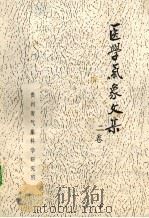 医学气象文集
二卷
贵州省气象科学研究所